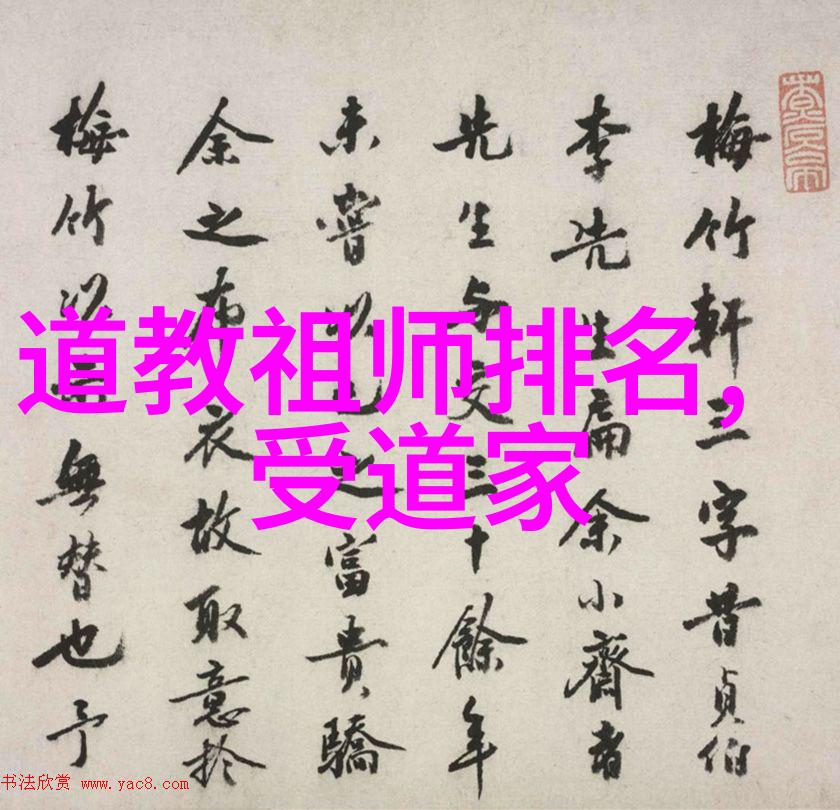 道教祖师排名,
受道家
梅竹軒三字昔貞伯
李先生扁余小齋者
先生与交三十餘年
未嘗以己之富貴驕
余之布衣故取意於
梅竹以示無替也予
书法欣赏 www.yac8.com